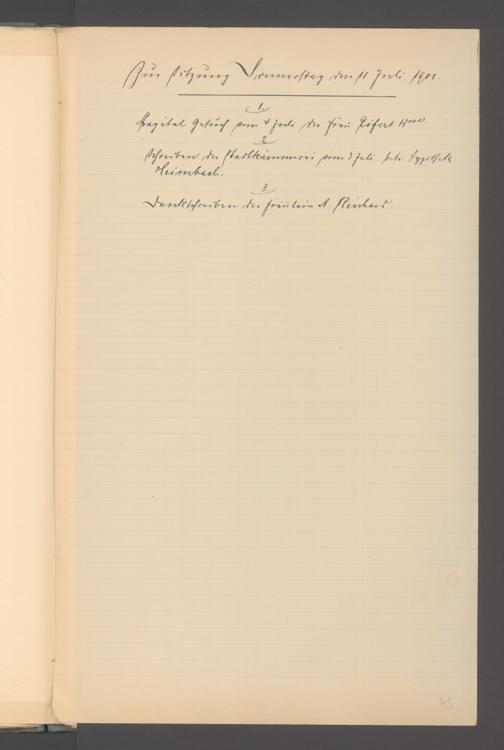 Zur Sitzung Donnerstag den 11 Juli 1901.
1.
Gesuch vom 4 Juli der Frau Eifert Wwe.
2.
Schreiben der Stadtkämmerei vom 3 Juli betr. Hypothek
Heimbach.
3.
Dankschreiben des Fräulein A. Reichard.
43